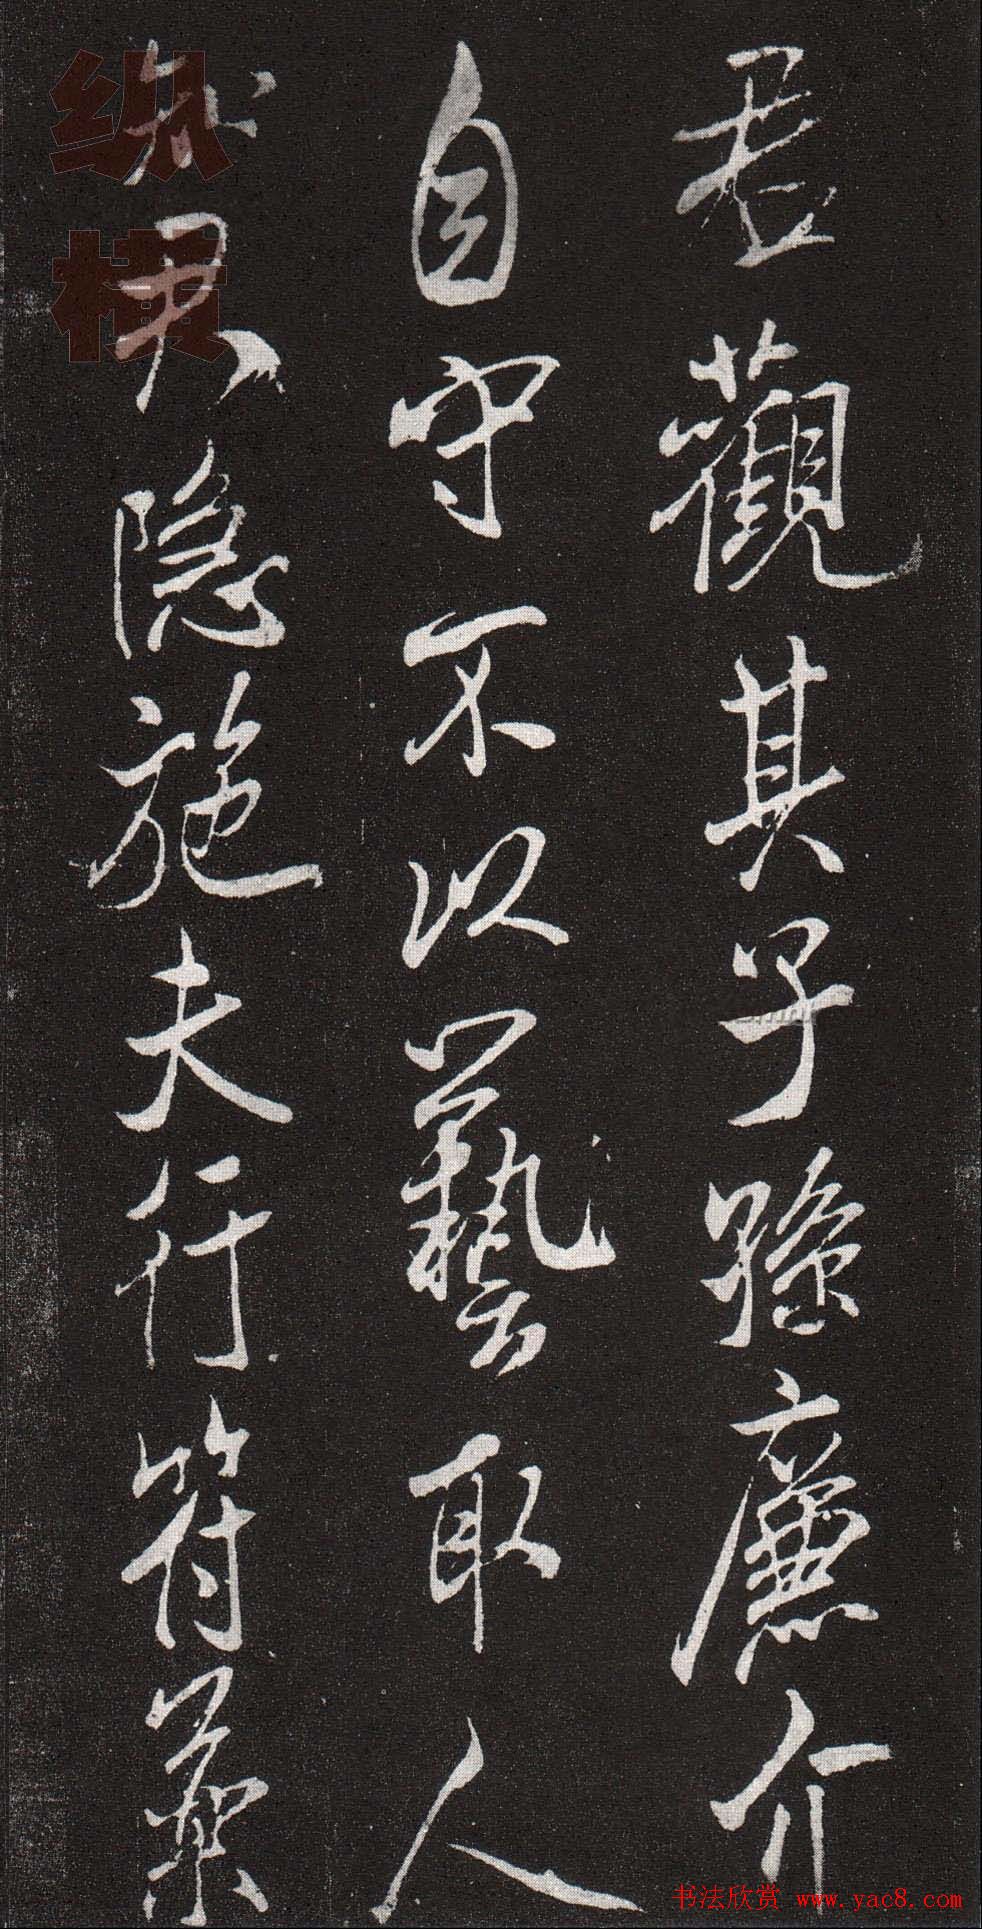 君觀其子孫廉介
自守不以藝取人
知隱施夫行符藥
纵横
书法欣赏 www.yac8.com